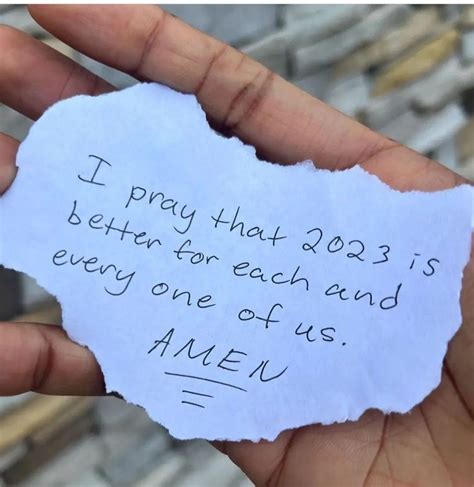 I pray that 2023 is
better for each and
every one of us.
AMEN